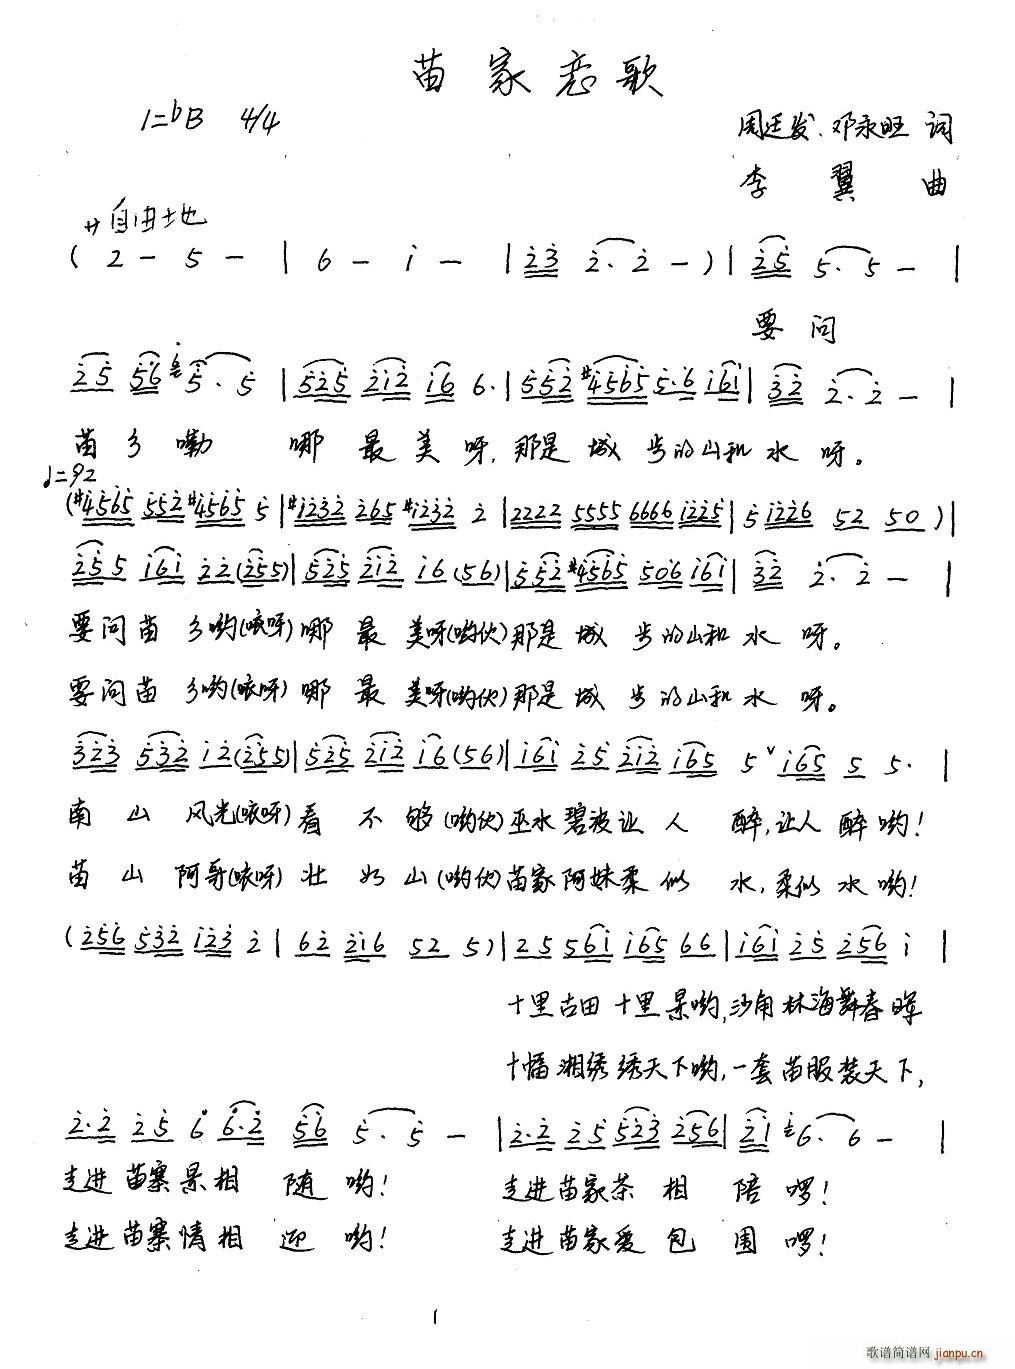 苗家恋歌
1=bB 4/4
周廷发、邓永旺 词
李翼 曲
サ自由地
( 2 - 5 - | 6 - i - | 2 3 2 · 2 - ) | 2 5 5 · 5 - |
要问
2 5 5 6 6 5 · 5 | 5 2 5 2 1 2 1 6 6 · | 5 5 2 #4 5 6 5 5 · 6 1 6 1 | 3 2 2 · 2 - |
苗乡嘞 哪最美呀,那是城步的山和水呀。
♩=92
( #4 5 6 5 5 5 2 #4 5 6 5 5 | #1 2 3 2 2 6 5 #1 2 3 2 2 | 2 2 2 2 5 5 5 5 6 6 6 6 1 2 2 5 | 5 1 2 2 6 5 2 5 0 ) |
2 5 5 1 6 1 2 2 (2 5 5) | 5 2 5 2 1 2 1 6 (5 6) | 5 5 2 #4 5 6 5 5 0 6 1 6 1 | 3 2 2 · 2 - |
要问苗乡哟(咳呀)哪最美呀(哟伙)那是城步的山和水呀。
要问苗乡哟(咳呀)哪最美呀(哟伙)那是城步的山和水呀。
3 2 3 5 3 2 1 2 (2 5 5) | 5 2 5 2 1 2 1 6 (5 6) | 1 6 1 2 5 2 1 2 1 6 5 5 ˅ 1 6 5 5 5 · |
南山风光(咳呀)看不够(哟伙)巫水碧波让人醉,让人醉哟!
苗山阿哥(咳呀)壮如山(哟伙)苗家阿妹柔似水,柔似水哟!
( 2 5 6 5 3 2 1 2 3 2 | 6 2 2 1 6 5 2 5 ) | 2 5 5 6 1 1 6 5 6 6 | 1 6 1 2 5 2 5 6 1 |
十里古田十里景哟,沙角林海舞春晖
十幅湘绣绣天下哟,一套苗服装天下,
2 · 2 2 5 6 6 · 2 5 6 5 · 5 - | 2 · 2 2 5 5 2 3 2 5 6 | 2 1 6 · 6 - |
走进苗寨景相随哟! 走进苗家茶相陪啰!
走进苗寨情相迎哟! 走进苗家爱包围啰!
1
歌谱简谱网 jianpu.cn